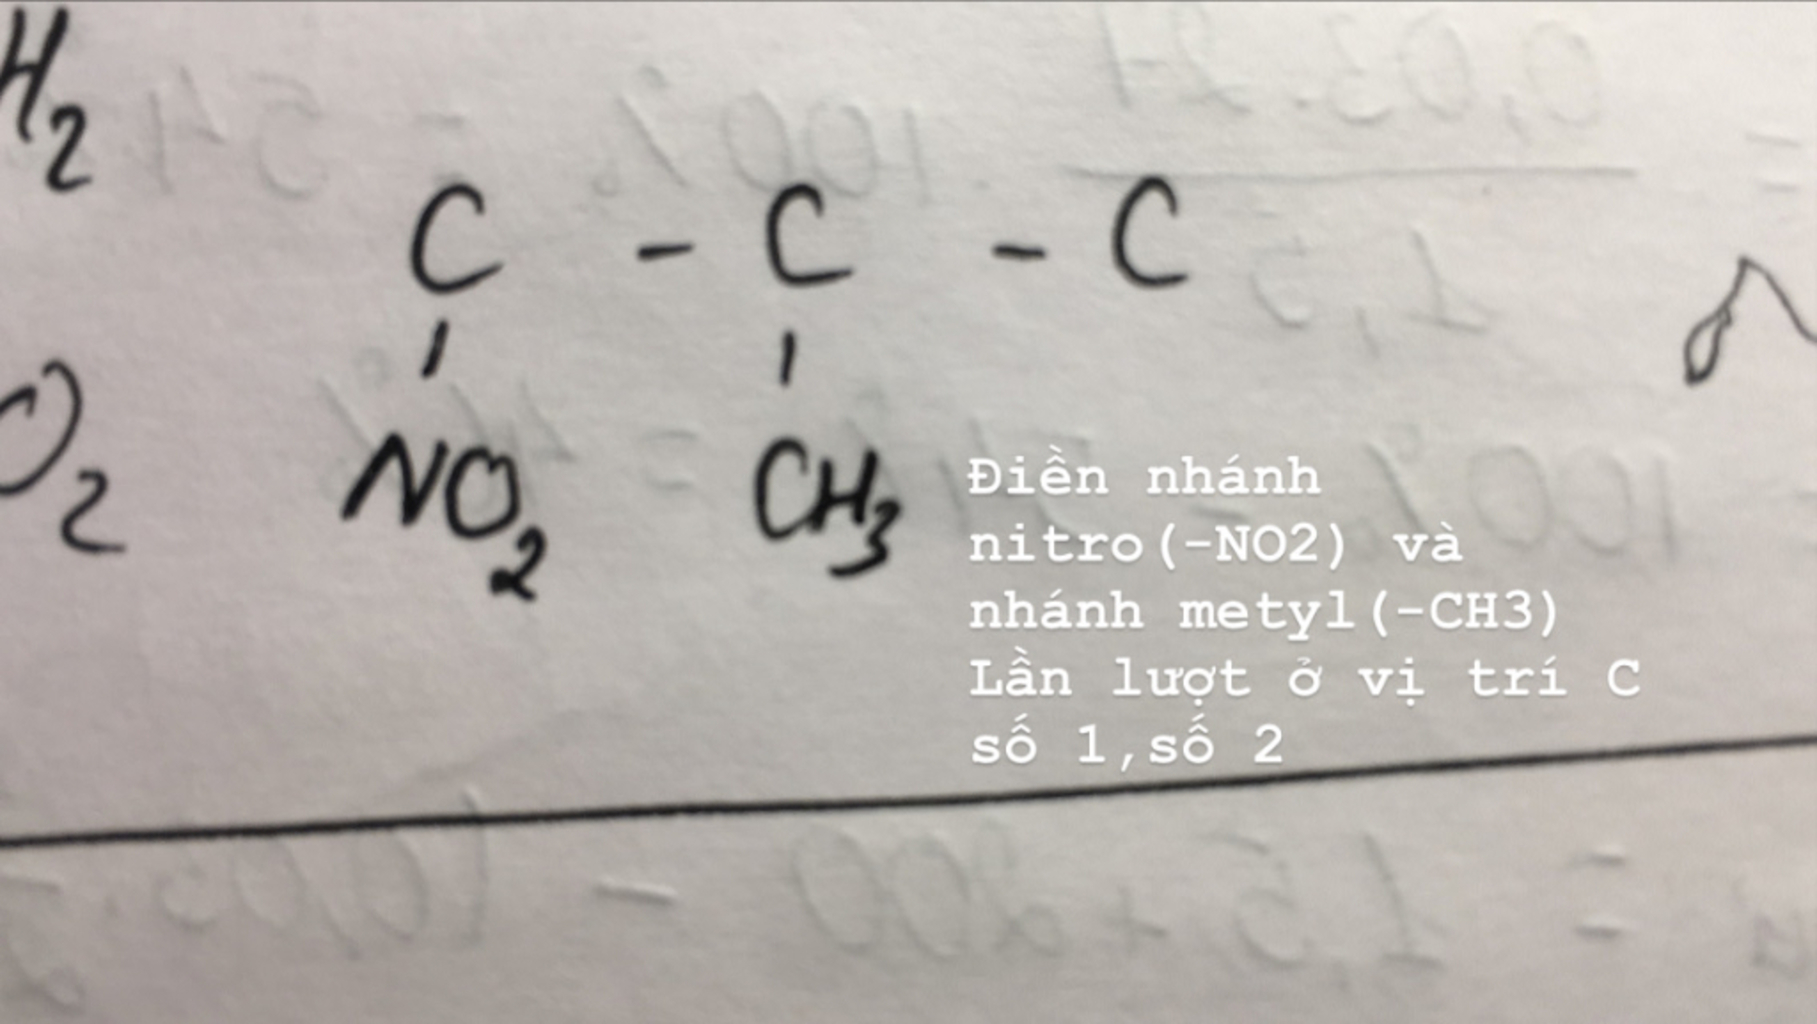 H2
C - C - C
O2
NO2 CH3
Điền nhánh
nitro(-NO2) và
nhánh metyl(-CH3)
Lần lượt ở vị trí C
số 1,số 2